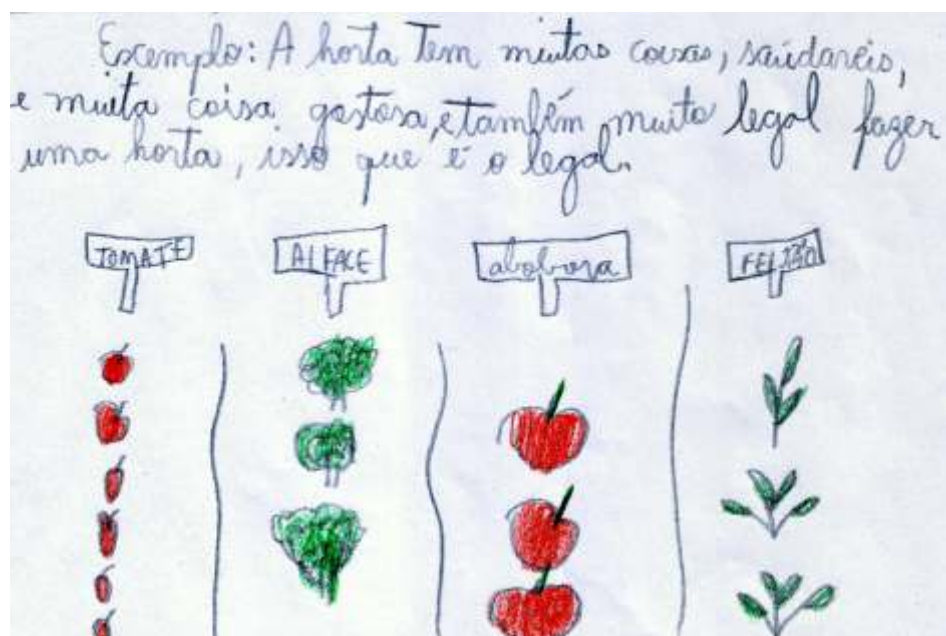 Exemplo: A horta Tem muitas coisas, saúdaveis,
e muita coisa gostosa, etambém muito legal fazer
uma horta, isso que é o legal.
TOMATE
ALFACE
abobora
FEIJÃO